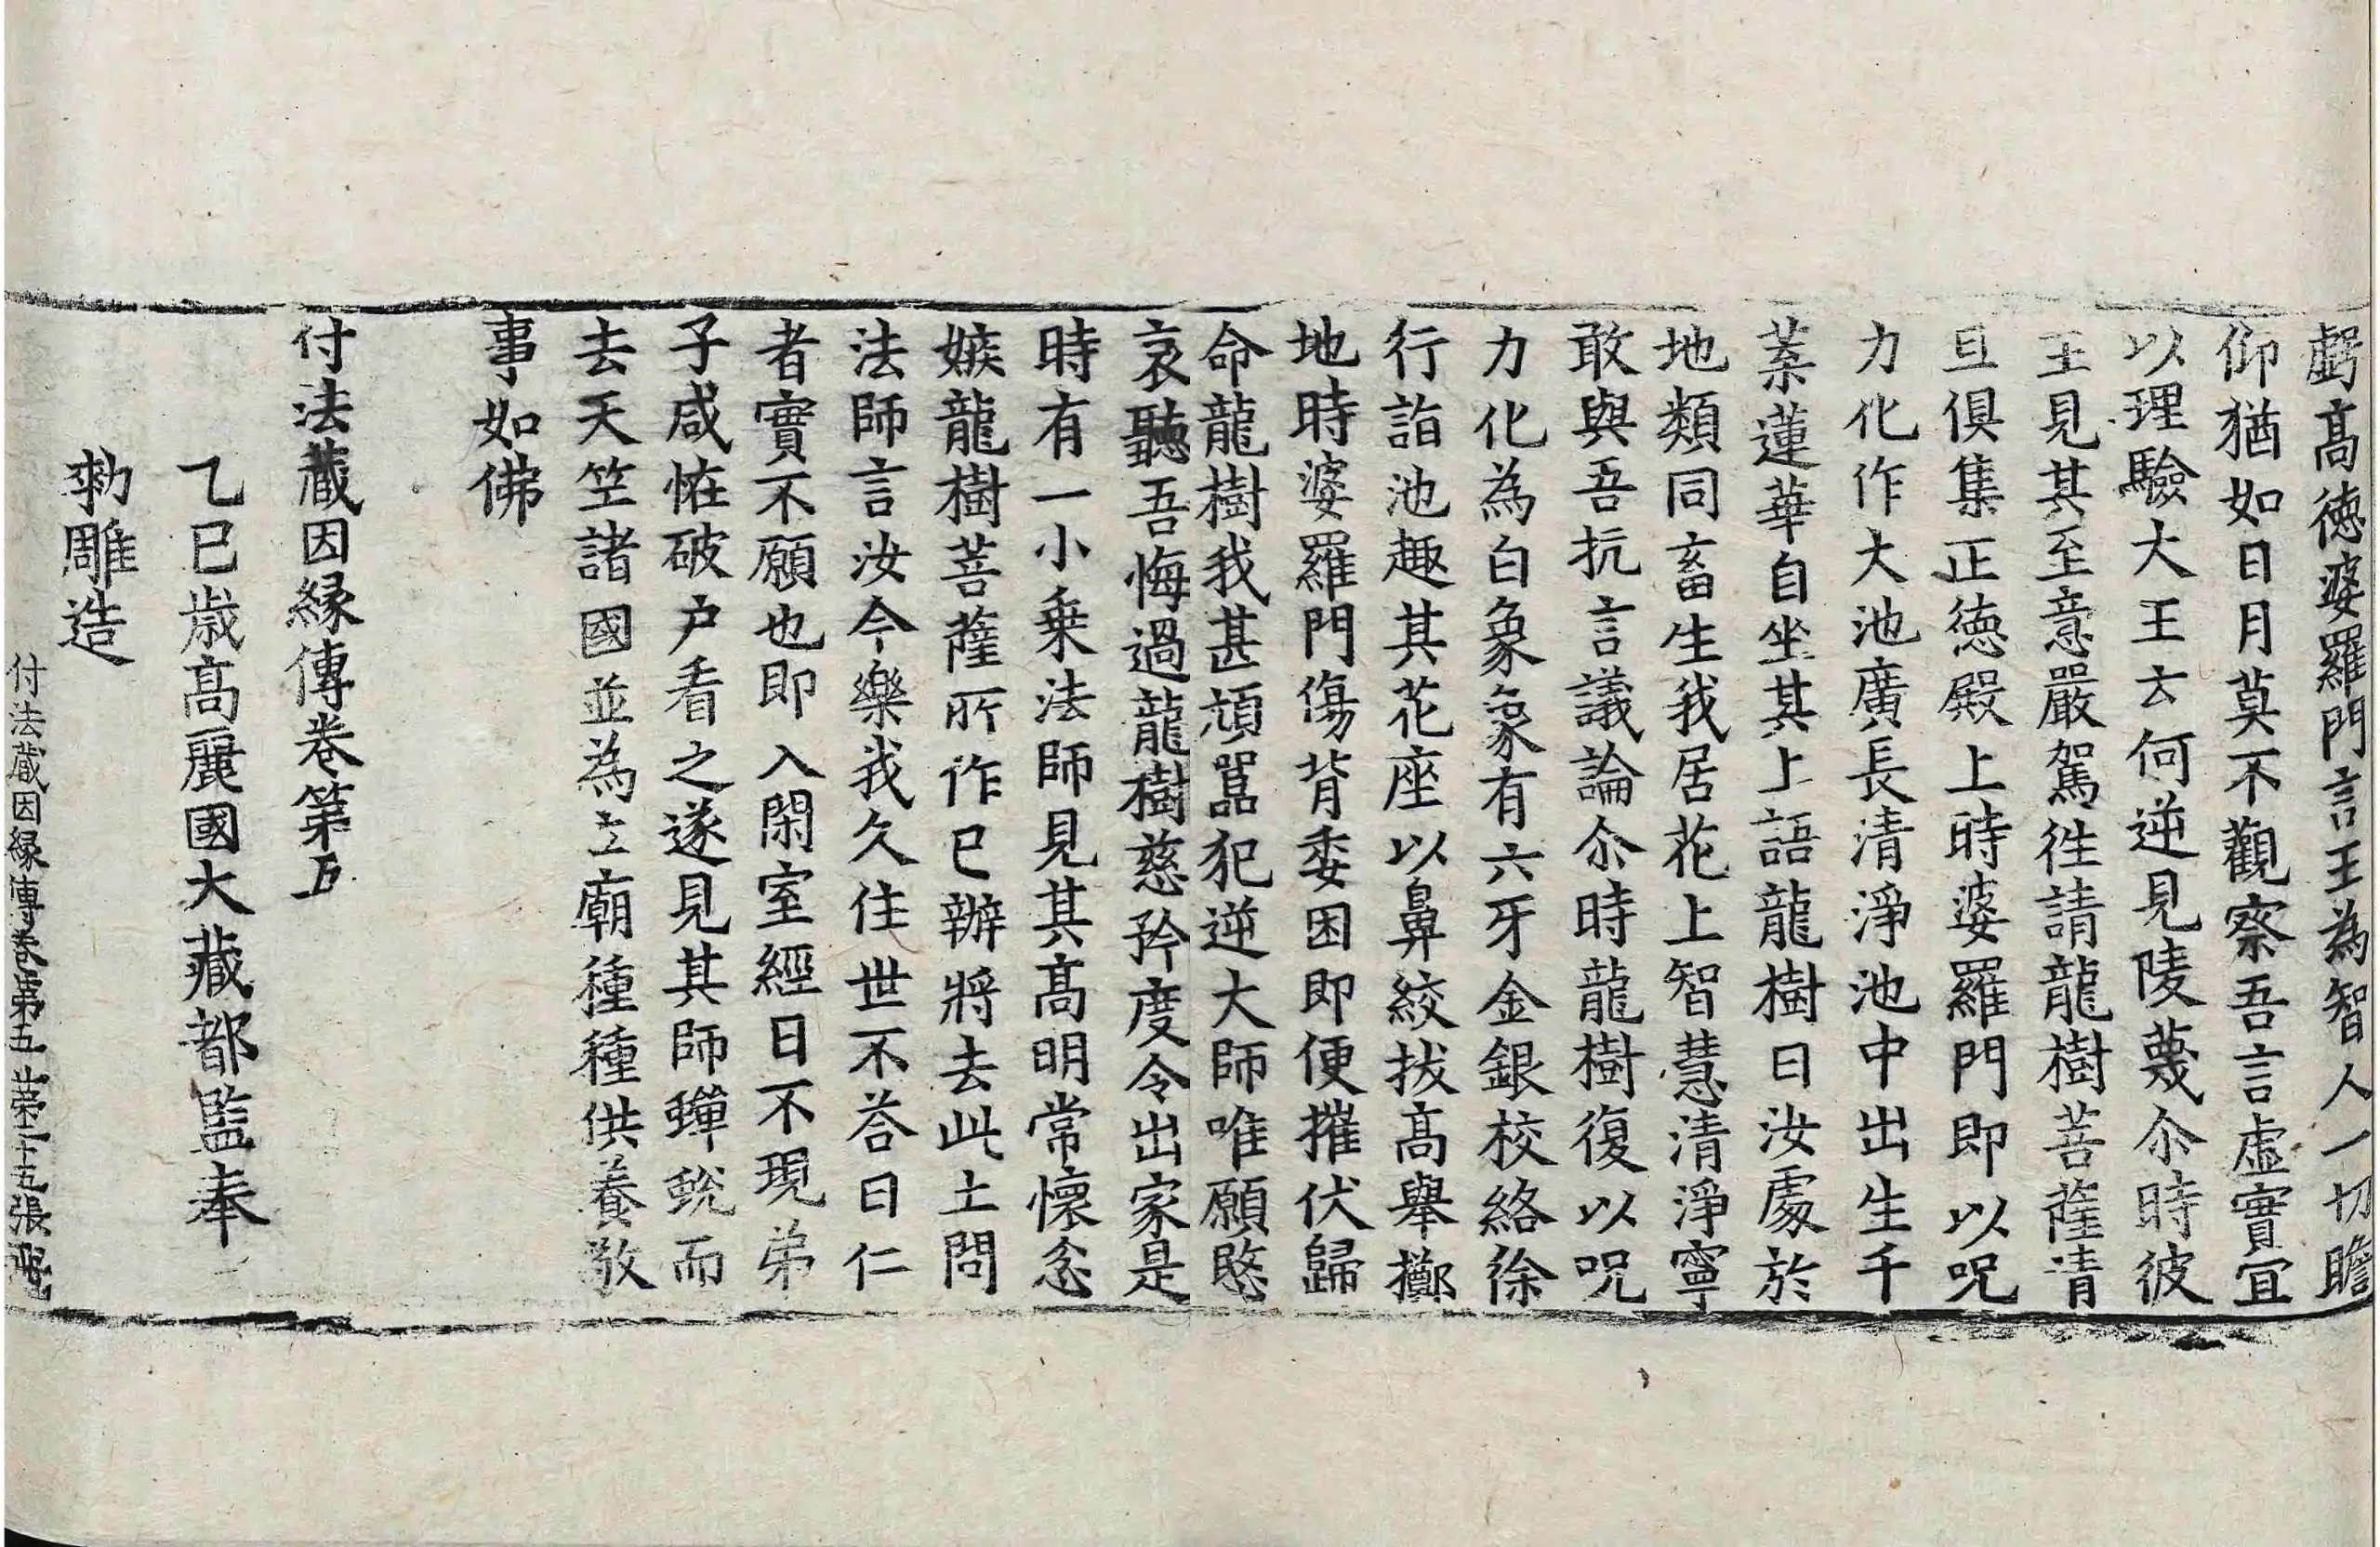 虧高徳婆羅門言王為智人一切瞻
仰猶如日月莫不觀察吾言虛實冝
以理驗大王云何逆見陵蔑尒時彼
王見其至意嚴駕徃請龍樹菩薩清
旦俱集正徳殿上時婆羅門即以呪
力化作大池廣長清淨池中出生千
葉蓮華自坐其上語龍樹曰汝處於
地類同畜生我居花上智慧清淨寧
敢與吾抗言議論尒時龍樹復以呪
力化為白象象有六牙金銀校絡徐
行詣池趣其花座以鼻絞拔高舉擲
地時婆羅門傷背委困即便摧伏歸
命龍樹我甚頑嚚犯逆大師唯願愍
哀聽吾悔過龍樹慈矜度令出家是
時有一小乗法師見其高明常懷忿
嫉龍樹菩薩所作已辦將去此土問
法師言汝今樂我久住世不荅曰仁
者實不願也即入閑室經日不現弟
子咸恠破户看之遂見其師蟬蛻而
去天竺諸國並為立廟種種供養敬
事如佛
付法蔵因縁傳卷第五
乙巳歳高麗國大藏都監奉
勑雕造
付法蔵因縁傳卷第五 第二十五張